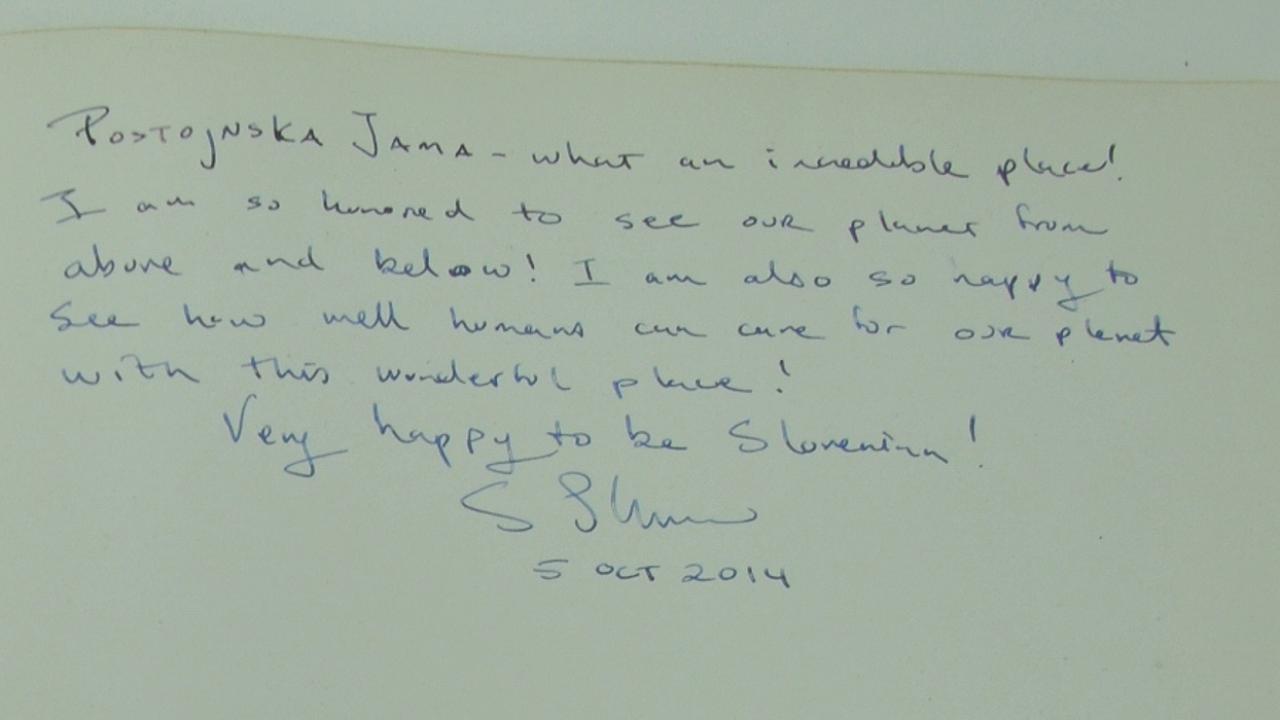 Postojnska Jama - what an incredible place!
I am so honored to see our planet from
above and below! I am also so happy to
see how well humans can care for our planet
with this wonderful place!
Very happy to be Slovenian!
5 OCT 2014